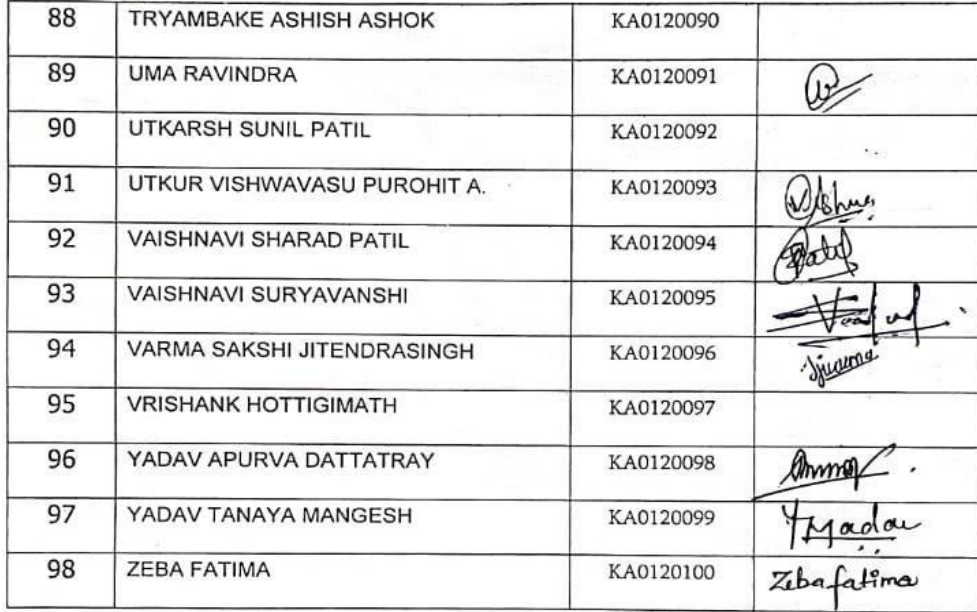 88 TRYAMBAKE ASHISH ASHOK KA0120090
89 UMA RAVINDRA KA0120091
90 UTKARSH SUNIL PATIL KA0120092
91 UTKUR VISHWAVASU PUROHIT A. KA0120093
92 VAISHNAVI SHARAD PATIL KA0120094 Patil
93 VAISHNAVI SURYAVANSHI KA0120095
94 VARMA SAKSHI JITENDRASINGH KA0120096
95 VRISHANK HOTTIGIMATH KA0120097
96 YADAV APURVA DATTATRAY KA0120098
97 YADAV TANAYA MANGESH KA0120099
98 ZEBA FATIMA KA0120100 Zeba fatima